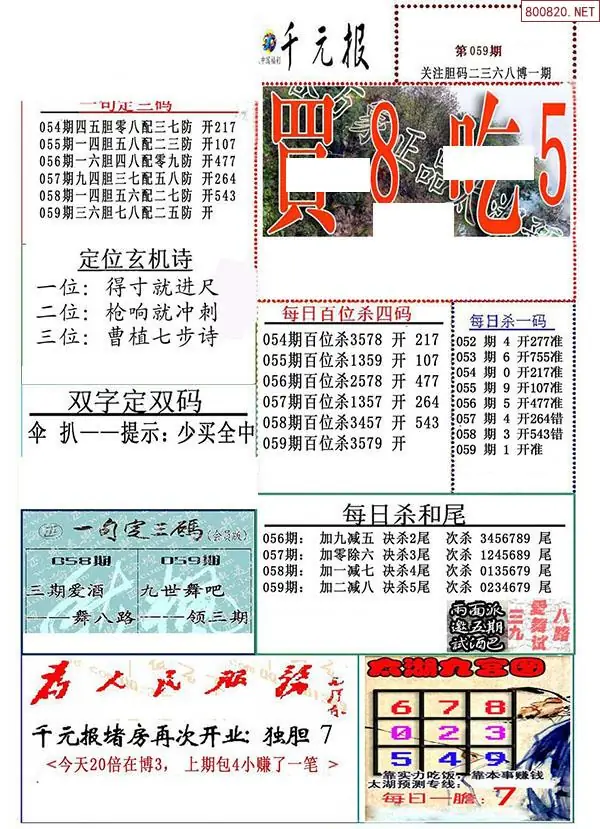 800820.NET
中国福利
千元报
第059期
关注胆码二三六八博一期
一句定三码
054期四五胆零八配三七防 开217
055期一四胆五八配二三防 开107
056期一六胆四八配零九防 开477
057期九四胆三七配五八防 开264
058期一四胆五六配二七防 开543
059期三六胆七八配二五防 开
買8吃5
定位玄机诗
一位: 得寸就进尺
二位: 枪响就冲刺
三位: 曹植七步诗
每日百位杀四码
054期百位杀3578 开 217
055期百位杀1359 开 107
056期百位杀2578 开 477
057期百位杀1357 开 264
058期百位杀3457 开 543
059期百位杀3579 开
每日杀一码
052 期 4 开277准
053 期 6 开755准
054 期 0 开217准
055 期 9 开107准
056 期 5 开477准
057 期 4 开264错
058 期 3 开543错
059 期 1 开准
双字定双码
伞 扒——提示: 少买全中
一句定三碼(会员版)
058期
059期
三期爱酒
——舞八路
九世舞吧
——领三期
每日杀和尾
056期: 加九减五 决杀2尾 次杀 3456789 尾
057期: 加零除六 决杀3尾 次杀 1245689 尾
058期: 加一减七 决杀4尾 次杀 0135679 尾
059期: 加二减八 决杀5尾 次杀 0234679 尾
雨面派
邀五期
试酒巴
三九
爱舞试
八路
为人民服务
千元报堵房再次开业: 独胆 7
<今天20倍在博3, 上期包4小赚了一笔 >
太湖九宫图
6 7 8
0 2 3
5 4 9
靠实力吃饭 靠本事赚钱
太湖预测专线:
每日一胆: 7